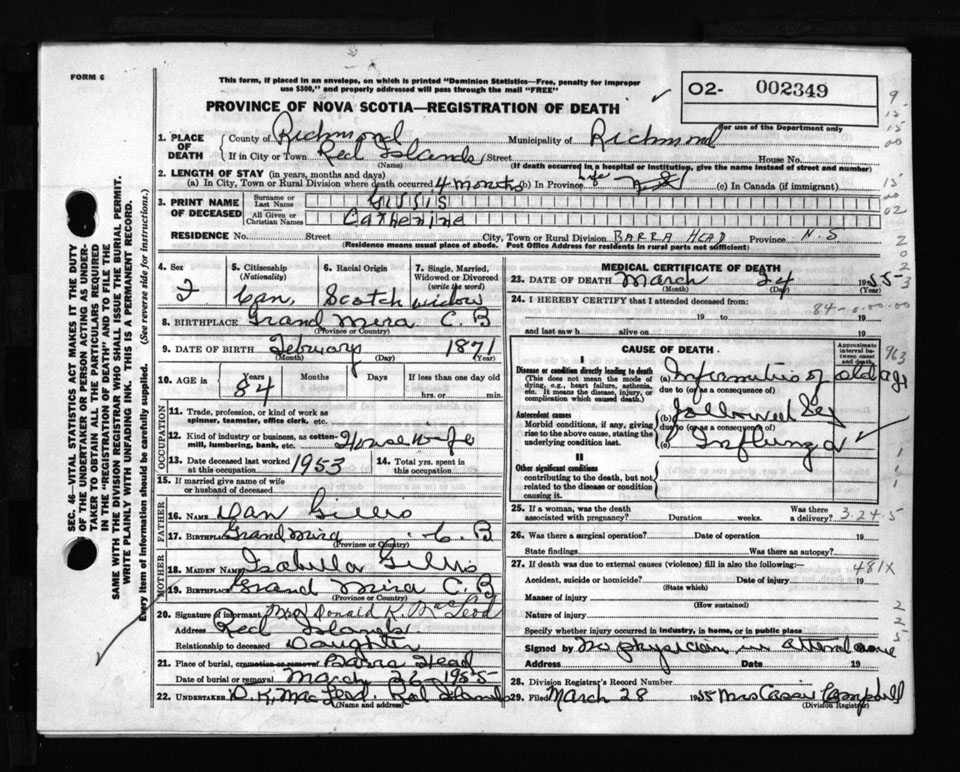 FORM 6
This form, if placed in an envelope, on which is printed "Dominion Statistics—Free, penalty for improper
use $300," and properly addressed will pass through the mail "FREE"
PROVINCE OF NOVA SCOTIA—REGISTRATION OF DEATH
02- 002349
For use of the Department only
1. PLACE OF DEATH County of Richmond Municipality of Richmond
If in City or Town Red Islands Street House No.
(Name) (If death occurred in a hospital or institution, give the name instead of street and number)
2. LENGTH OF STAY (in years, months and days)
(a) In City, Town or Rural Division where death occurred 4 months (b) In Province Life (c) In Canada (if immigrant)
3. PRINT NAME OF DECEASED Surname or Last Name
All Given or Christian Names Catherine
RESIDENCE No. Street City, Town or Rural Division BARRA HEAD Province N.S
(Residence means usual place of abode. Post Office Address for residents in rural parts not sufficient)
4. Sex
5. Citizenship (Nationality) Can.
6. Racial Origin Scotch
7. Single, Married, Widowed or Divorced (write the word) widow
8. BIRTHPLACE Grand Mira C. B
(Province or Country)
9. DATE OF BIRTH February 1871
(Month) (Day) (Year)
10. AGE in Years 84 Months Days If less than one day old
hrs. or min.
OCCUPATION
11. Trade, profession, or kind of work as
spinner, teamster, office clerk, etc.
12. Kind of industry or business, as cotten-
mill, lumbering, bank, etc. Housewife
13. Date deceased last worked at this occupation 1953
14. Total yrs. spent in this occupation
15. If married give name of wife
or husband of deceased
FATHER
16. NAME Dan Gillis
17. BIRTHPLACE Grand Mira C. B
(Province or Country)
MOTHER
18. MAIDEN NAME Isabella Gillis
19. BIRTHPLACE Grand Mira C. B
(Province or Country)
20. Signature of informant Mrs Donald K. MacLeod
Address Red Islands
Relationship to deceased Daughter
21. Place of burial, cremation or removal Barra Head
Date of burial or removal March 26 1955
22. UNDERTAKER D. K. MacLeod. Red Islands
(Name and address)
MEDICAL CERTIFICATE OF DEATH
23. DATE OF DEATH March 24 1955
(Month) (Day)
24. I HEREBY CERTIFY that I attended deceased from:
19 to 19
and last saw h alive on 19
CAUSE OF DEATH
Approximate interval between onset and death
I
Disease or condition directly leading to death
(This does not mean the mode of
dying, e.g., heart failure, asthenia,
etc. It means the disease, injury, or
complication which caused death.)
(a) Infirmities of old age
due to (or as a consequence of)
Antecedent causes
Morbid conditions, if any, giving
rise to the above cause, stating the
underlying condition last.
(b) followed by
due to (or as a consequence of)
(c) Influnza
II
Other significant conditions
contributing to the death, but not
related to the disease or condition
causing it.
25. If a woman, was the death
associated with pregnancy? Duration weeks. Was there a delivery? 3.24.5
26. Was there a surgical operation? Date of operation 19
State findings Was there an autopsy?
27. If death was due to external causes (violence) fill in also the following:— 481X
Accident, suicide or homicide? Date of injury 19
(State which)
Manner of injury
(How sustained)
Nature of injury
Specify whether injury occurred in industry, in home, or in public place
Signed by No physician in attendance
Address Date 19
28. Division Registrar's Record Number
29. Filed March 28 1955 Mrs Cassie Campbell
(Division Registrar)
SEC. 46—VITAL STATISTICS ACT MAKES IT THE DUTY
OF THE UNDERTAKER OR PERSON ACTING AS UNDER-
TAKER TO OBTAIN ALL THE PARTICULARS REQUIRED
IN THE "REGISTRATION OF DEATH" AND TO FILE THE
SAME WITH THE DIVISION REGISTRAR WHO SHALL ISSUE THE BURIAL PERMIT.
WRITE PLAINLY WITH UNFADING INK. THIS IS A PERMANENT RECORD.
Every item of information should be carefully supplied. (See reverse side for instructions.)